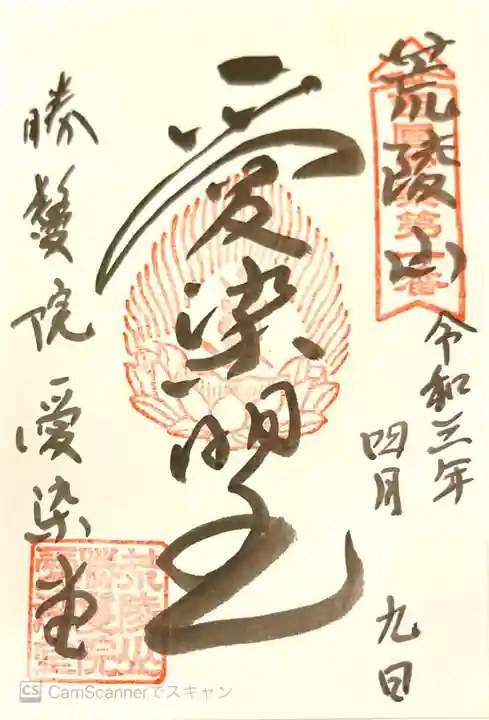 荒陵山
令和三年
四月
九日
愛染明王
勝鬘院愛染堂
荒陵山
勝鬘院
愛染堂
CS CamScannerでスキャン